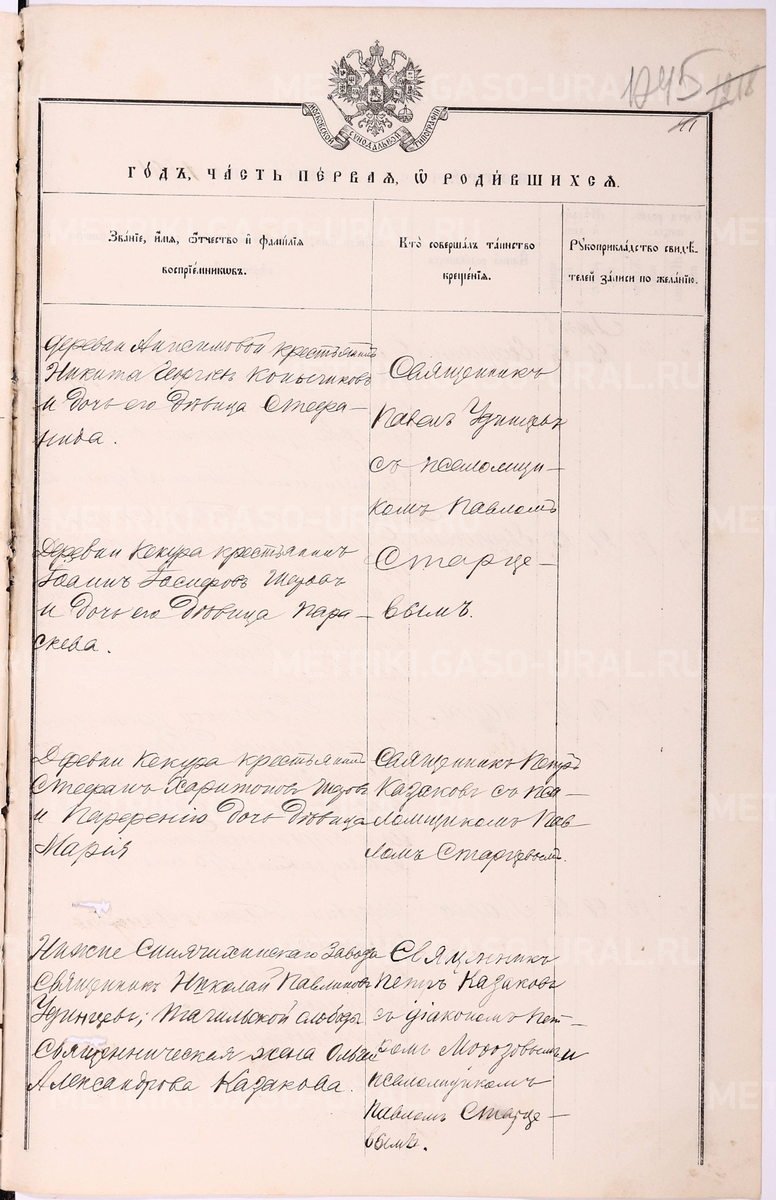 1245
МОСКОВСКОЙ СѴНОДАЛЬНОЙ ТИПОГРАФІИ
ГО́ДЪ, ЧА́СТЬ ПЕ́РВАЯ, Ѡ РОДИ́ВШИХСЯ.
Зва́нїе, и́мя, ѻ҆́тчество и҆ фами́лїя
воспрїе́мникѡвъ.
Кто̀ соверша́лъ та́инство
креще́нїя.
Рꙋкоприкла́дство свидѣ́-
телей за́писи по жела́нїю.
Деревни Анисимовой крестьянинъ
Никита Георгіевъ Копычиковъ
и дочь его дѣвица Стефа-
нида.
Священникъ
Павелъ Удинцевъ
съ псаломщи-
комъ Павломъ
Старце-
вымъ.
Деревни Кекура крестьянинъ
Іоаннъ Іосифовъ
и дочь его дѣвица Пара-
скева.
Деревни Кекура крестьянинъ
Стефанъ Харитоновъ
и дочь дѣвица
Марія
Священникъ Петръ
Казаковъ съ пса-
ломщикомъ Пав-
ломъ Старцевымъ.
Нижне Синячихинскаго Завода
Священникъ Николай Павлиновъ
Удинцевъ; Тагильской слободы
Священническая жена Ольга
Александрова Казакова.
Священникъ
Петръ Казаковъ
съ діакономъ Пет-
ромъ Морозовымъ и
псаломщикомъ
Павломъ Старце-
вымъ.
METRIKI.GASO-URAL.RU